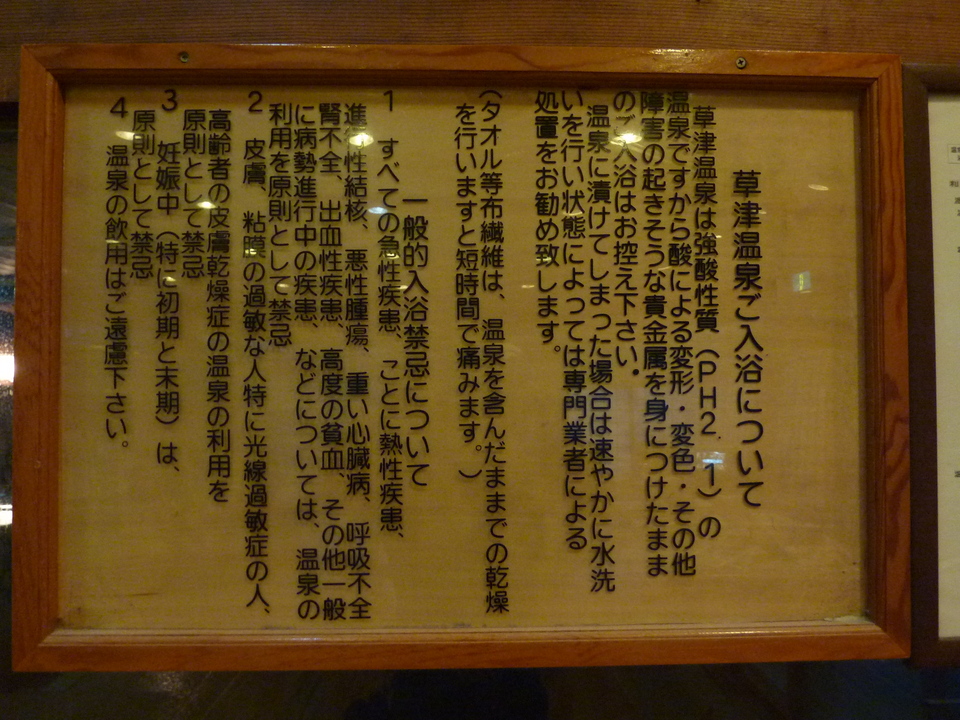 草津温泉ご入浴について
草津温泉は強酸性質（PH2.1）の
温泉ですから酸による変形・変色・その他
障害の起きそうな貴金属を身につけたまま
のご入浴はお控え下さい.
温泉に漬けてしまった場合は速やかに水洗
いを行い状態によっては専門業者による
処置をお勧め致します。
（タオル等布繊維は、温泉を含んだままでの乾燥
を行いますと短時間で痛みます。）
一般的入浴禁忌について
1 すべての急性疾患、ことに熱性疾患、
進行性結核、悪性腫瘍、重い心臓病、呼吸不全
腎不全、出血性疾患、高度の貧血、その他一般
に病勢進行中の疾患、などについては、温泉の
利用を原則として禁忌
2 皮膚、粘膜の過敏な人特に光線過敏症の人、
高齢者の皮膚乾燥症の温泉の利用を
原則として禁忌
3 妊娠中（特に初期と末期）は、
原則として禁忌
4 温泉の飲用はご遠慮下さい。